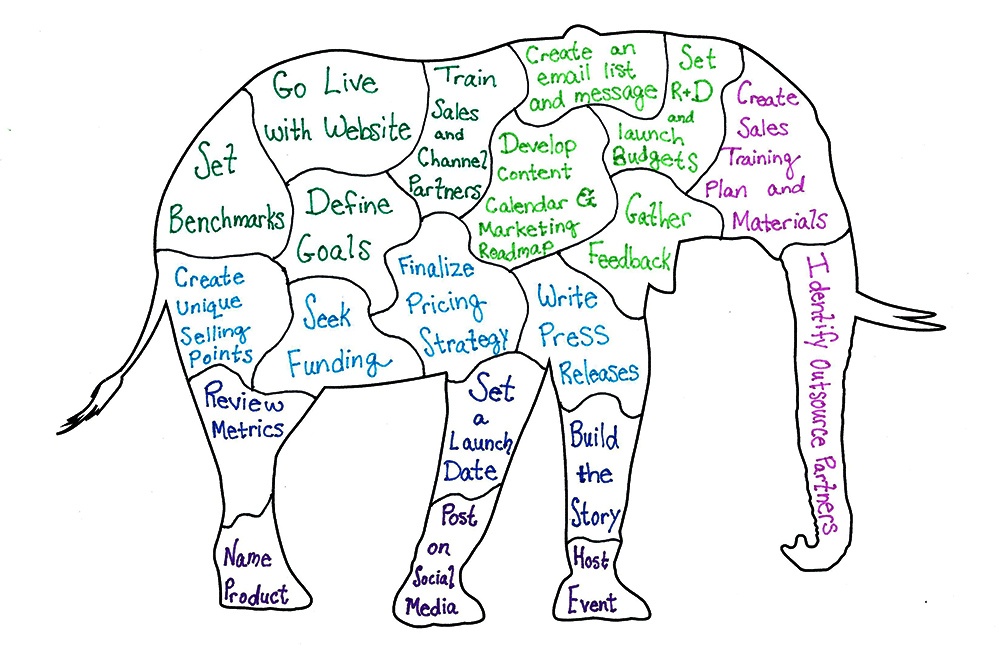 Go Live
with Website
Train
Sales
and
Channel
Partners
Create an
email list
and message
Set
R+D
and
launch
Budgets
Create
Sales
Training
Plan and
Materials
Set
Benchmarks
Define
Goals
Develop
Content
Calendar &
Marketing
Roadmap
Gather
Feedback
Create
Unique
Selling
Points
Seek
Funding
Finalize
Pricing
Strategy
Write
Press
Releases
Identify Outsource Partners
Review
Metrics
Set
a
Launch
Date
Build
the
Story
Name
Product
Post
on
Social
Media
Host
Event